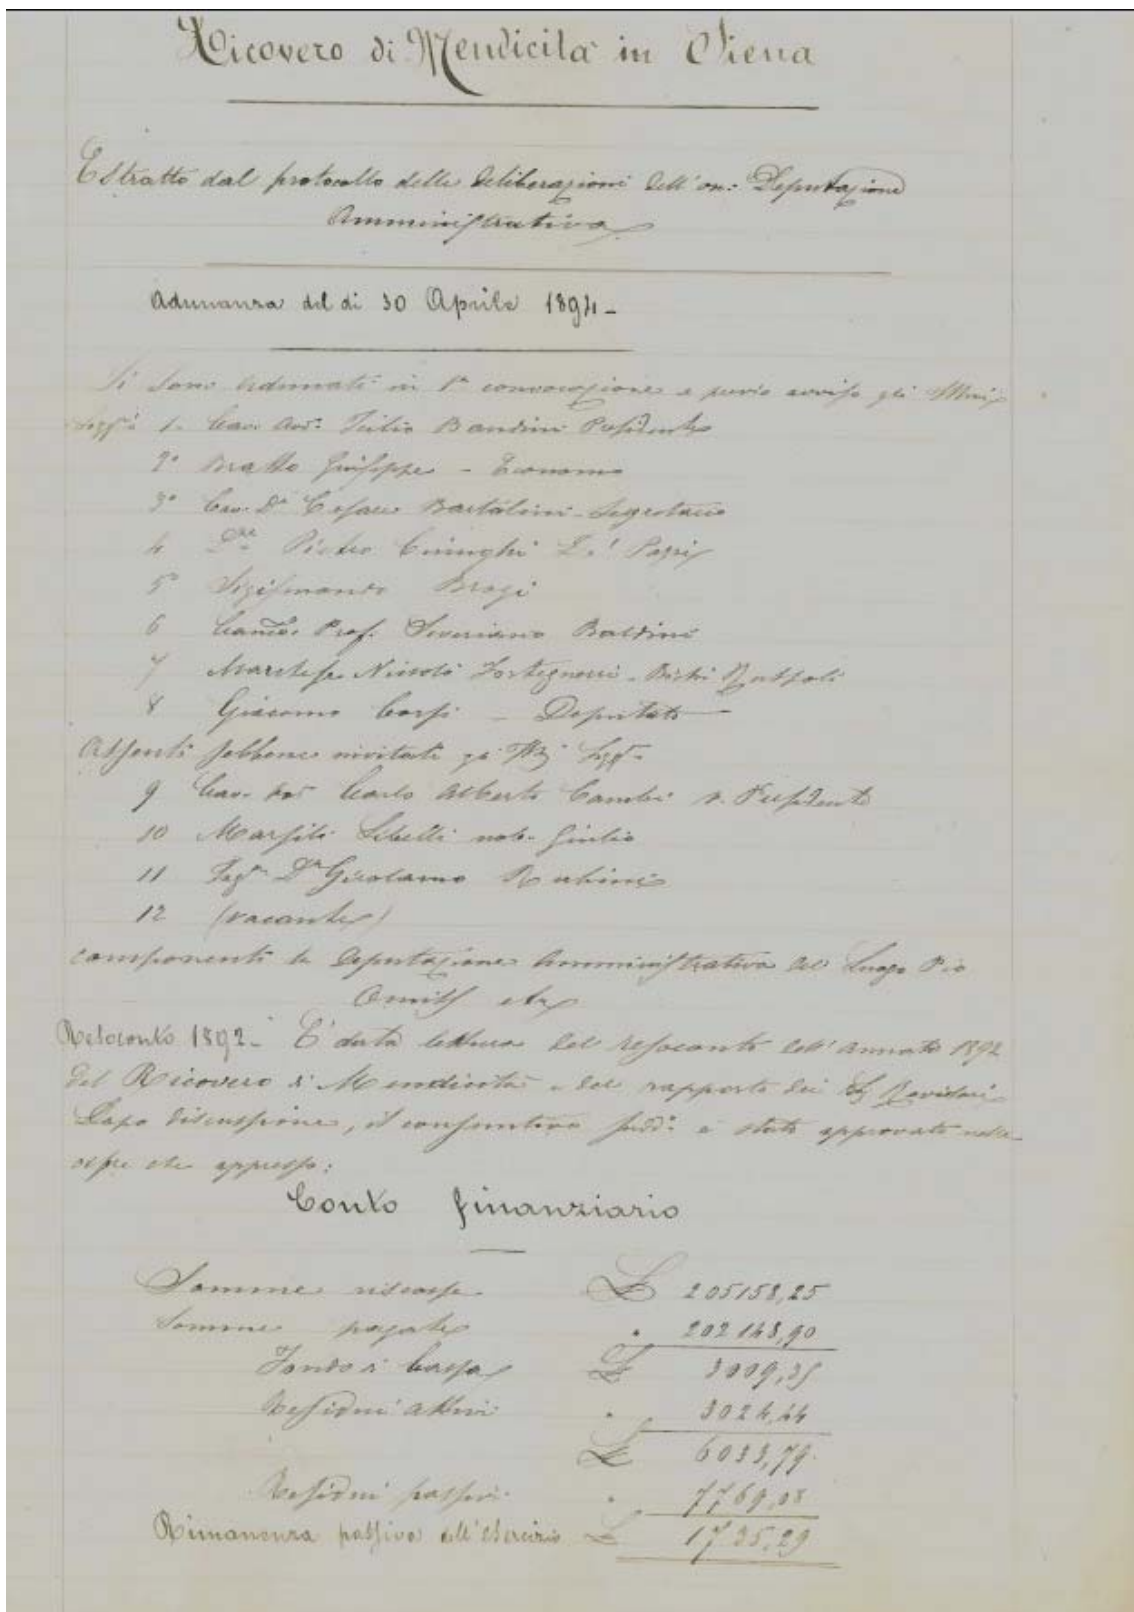 Ricovero di Mendicità in Siena
Estratto dal protocollo delle deliberazioni dell'on: Deputazione
Amministrativa
Adunanza del di 30 Aprile 1894 -
Si sono adunati in 1a convocazione e previo avviso gli
1. Cav. Avv: Tulio Bandini Presidente
2° Giuseppe - Economo
3° Cav. Dr Cesare Bartalini - Segretario
4 Pietro
5° Sigismondo Brogi
6 Prof. Severiano Baldini
7 Marchese Niccolò
8 Giacomo Corsi - Deputati
Assenti sebbene invitati
9 Cav. Carlo Alberto Cambi v. Presidente
10 Marsili Libelli nob. Giulio
11 Dr Girolamo Rubini
12 (vacante)
componenti la Deputazione Amministrativa del Luogo Pio
Omiss etc
Resoconto 1892 - È data lettura del resoconto dell'annata 1892
del Ricovero di Mendicità e del rapporto dei Revisori
Dopo discussione, il consuntivo sudd: è stato approvato nelle
cifre che appresso:
Conto finanziario
Somme riscosse £ 205158,25
Somme pagate " 202148,90
Fondo di Cassa £ 3009,35
Residui attivi " 3024,44
£ 6033,79
Residui passivi " 7769,08
Rimanenza passiva dell'esercizio £ 1735,29